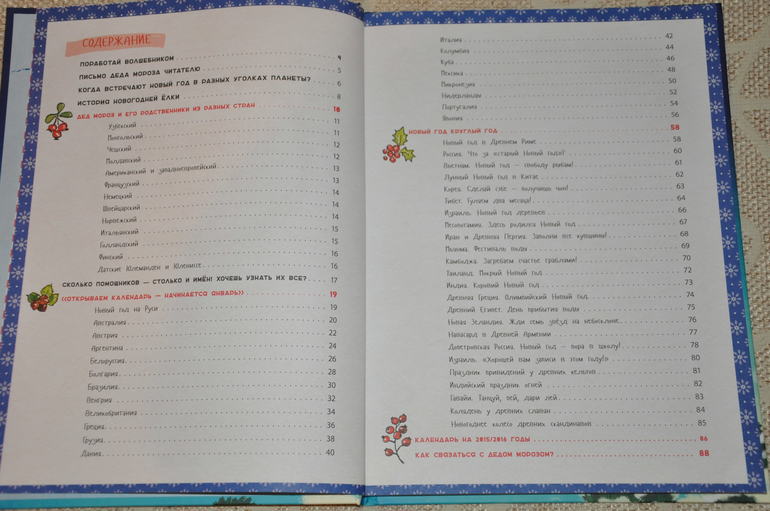 СОДЕРЖАНИЕ
ПОРАБОТАЙ ВОЛШЕБНИКОМ 4
ПИСЬМО ДЕДА МОРОЗА ЧИТАТЕЛЮ 5
КОГДА ВСТРЕЧАЮТ НОВЫЙ ГОД В РАЗНЫХ УГОЛКАХ ПЛАНЕТЫ? 6
ИСТОРИЯ НОВОГОДНЕЙ ЁЛКИ 8
ДЕД МОРОЗ И ЕГО РОДСТВЕННИКИ ИЗ РАЗНЫХ СТРАН 10
Узбекский 11
Монгольский 11
Чешский 12
Молдавский 12
Американский и западноевропейский 13
Французский 13
Немецкий 14
Швейцарский 14
Норвежский 14
Итальянский 15
Голландский 15
Финский 16
Датские Юлеманден и Юлениссе 16
СКОЛЬКО ПОМОЩНИКОВ — СТОЛЬКО И ИМЁН! ХОЧЕШЬ УЗНАТЬ ИХ ВСЕ? 17
«ОТКРЫВАЕМ КАЛЕНДАРЬ — НАЧИНАЕТСЯ ЯНВАРЬ» 19
Новый год на Руси 19
Австралия 20
Австрия 22
Аргентина 24
Белоруссия 26
Болгария 28
Бразилия 30
Венгрия 32
Великобритания 34
Греция 36
Грузия 38
Дания 40
Италия 42
Колумбия 44
Куба 46
Мексика 48
Микронезия 50
Нидерланды 52
Португалия 54
Япония 56
НОВЫЙ ГОД КРУГЛЫЙ ГОД 58
Новый год в Древнем Риме 58
Россия. Что за старый Новый год? 60
Вьетнам. Новый год — свободу рыбам! 61
Лунный Новый год в Китае 62
Корея. Сделай сэбе — получишь чын! 63
Тибет. Гуляем два месяца! 64
Израиль. Новый год деревьев 66
Месопотамия. Здесь родился Новый год 67
Иран и Древняя Персия. Заполни все кувшины! 68
Мьянма. Фестиваль воды 69
Камбоджа. Загребаем счастье граблями! 70
Таиланд. Мокрый Новый год 72
Индия. Коровий Новый год 73
Древняя Греция. Олимпийский Новый год 74
Древний Египет. День прибытия воды 75
Новая Зеландия. Жди семь звёзд на небосклоне 76
Навасард в Древней Армении 77
Допетровская Россия. Новый год — пора в школу! 78
Израиль. «Хорошей вам записи в этом году!» 80
Праздник привидений у древних кельтов 81
Индийский праздник огней 82
Гавайи. Танцуй, пей, дари лей! 83
Коляден у древних славян 84
Новогоднее колесо древних скандинавов 85
КАЛЕНДАРЬ НА 2015/2016 ГОДЫ 86
КАК СВЯЗАТЬСЯ С ДЕДОМ МОРОЗОМ? 88